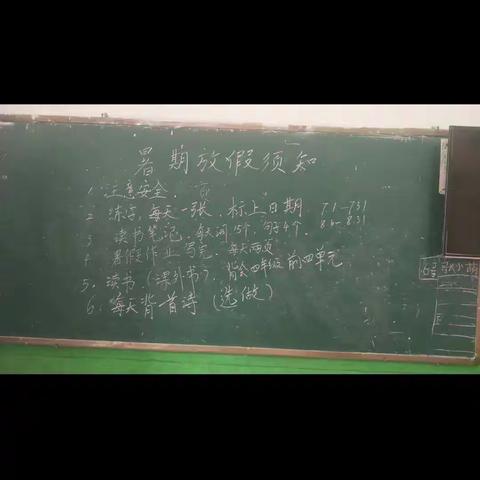 暑期放假须知
1. 注意安全
2. 练字,每天一张,标上日期 7.1—7.31
3. 读书笔记,每天词15个,句子4个. 8.1—8.31
4. 暑假作业写完,每天两页
5. 读书(课外书)背会四年级前四单元
6. 每天背一首诗(选做)